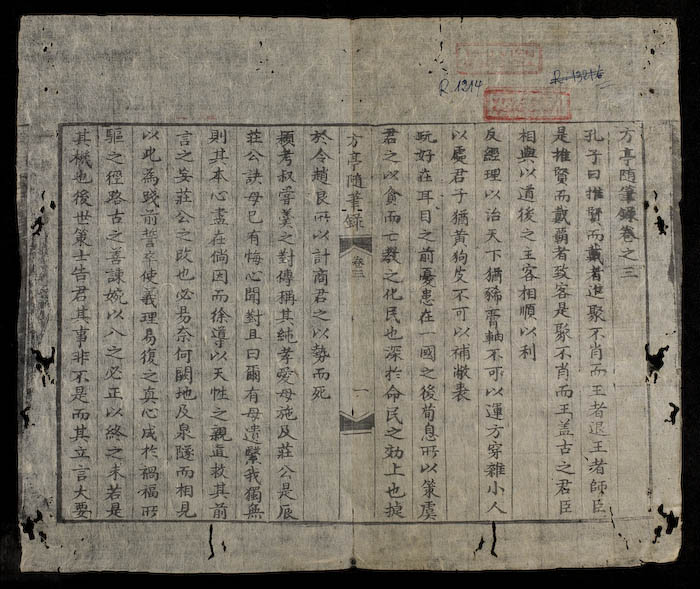 R.1214
R.13216
方亭隨筆錄卷之三
孔子曰推賢而戴者進聚不肖而王者退王者師臣
是推賢而戴霸者致客是聚不肖而王盖古之君臣
相與以道後之王客相順以利
反經理以治天下猶豨膏軸不可以運方穿雜小人
以處君子猶黃狗皮不可以補敝裘
玩好在耳目之前憂患在一國之後荀息所以策虞
君之以貪而亡教之化民也深於命民之効上也捷
於令趙良所以計商君之以勢而死
方亭隨筆錄 卷三 一
潁考叔嘗羹之對傳稱其純孝愛母施及莊公是辰
莊公訣母已有悔心聞對且曰爾有母遺繄我獨無
則其本心盡在倘因而徐導以天性之親直救其前
言之妄莊公之改也必易奈何闕地及泉隧而相見
以此為踐前誓卒使義理易復之真心成於禍福所
驅之徑路古之善諫婉以入之必正以終之未若是
其機也後世策士告君其事非不是而其立言大要